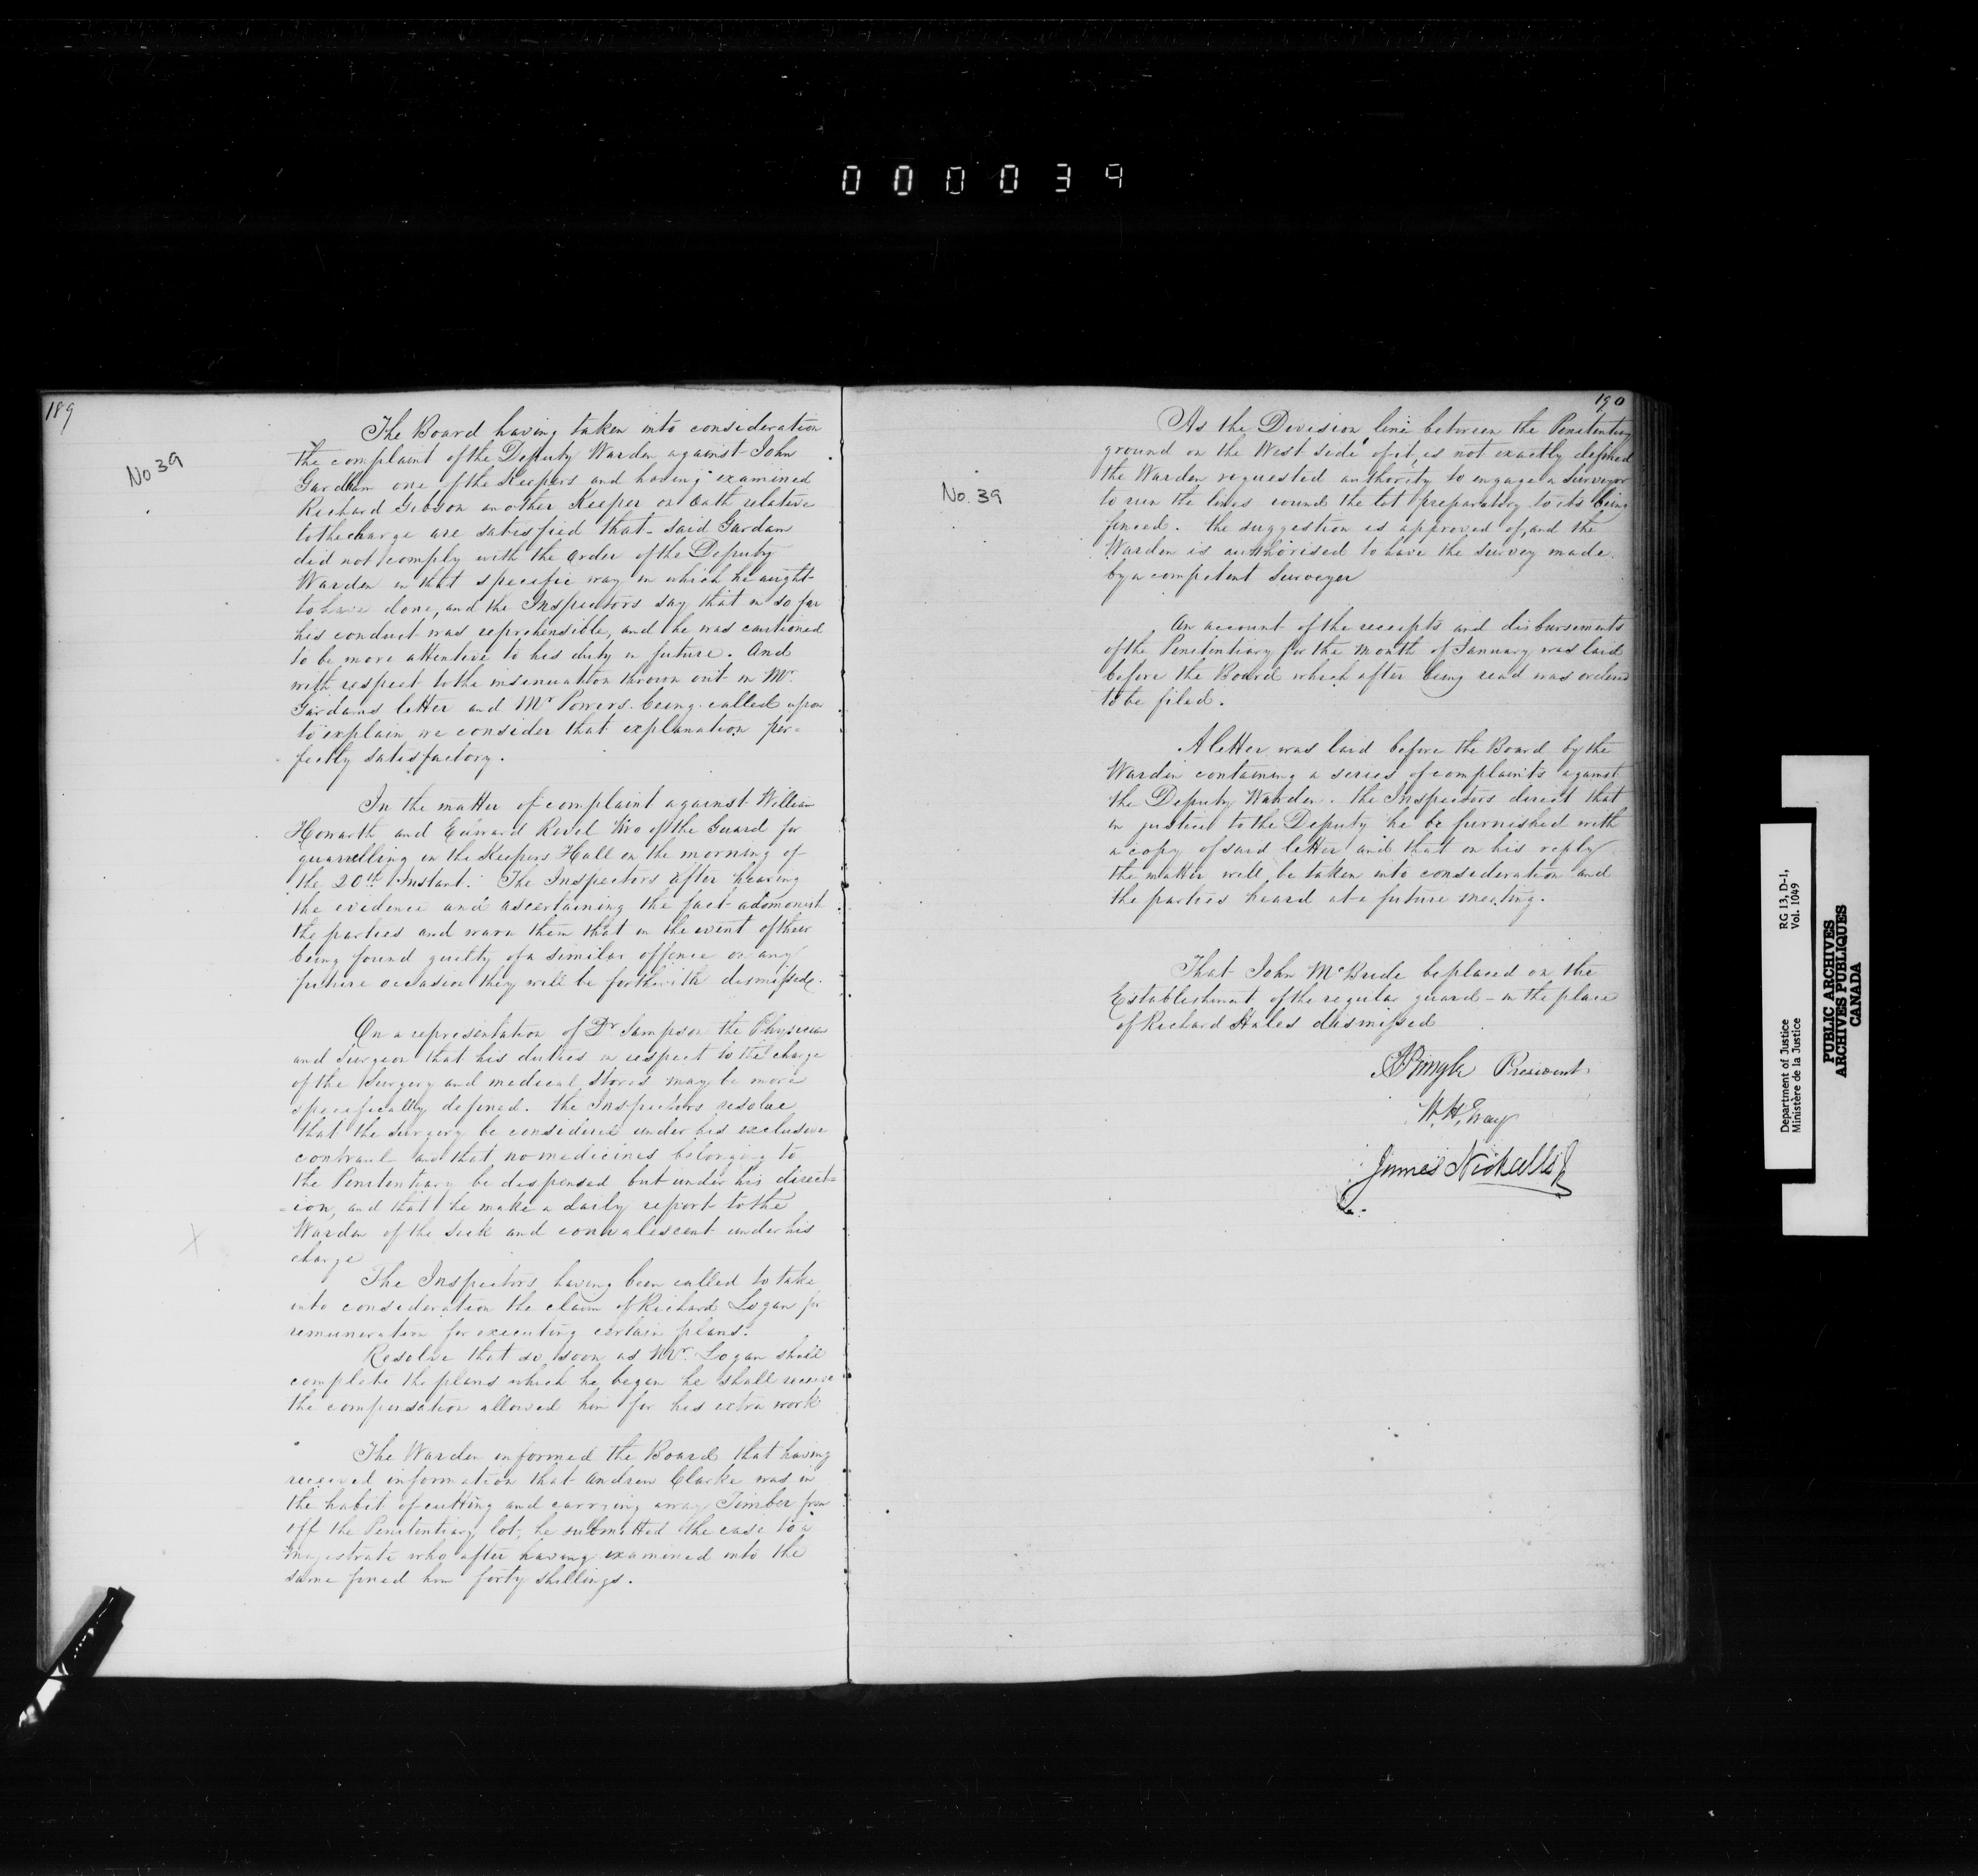 000039
189
No 39
The Board having taken into consideration
the complaint of the Deputy Warden against John
Gardham one of the Keepers and having examined
Richard Gibson another Keeper on oath relative
to the charge are satisfied that said Gardam
did not comply with the order of the Deputy
Warden in that specific way in which he aught
to have done, and the Inspectors say that in so far
his conduct was reprehensible, and he was cautioned
to be more attentive to his duty in future. And
with respect to the insinuation thrown out in Mr.
Gardams letter and Mr Powers being called upon
to explain we consider that explanation per=
fectly satisfactory.
In the matter of complaint against William
Howarth and Edward Revel two of the Guard for
quarrelling in the Keepers Hall on the morning of
the 20th Instant. The Inspectors after hearing
the evidence and ascertaining the fact admonish
the parties and warn them that in the event of their
being found guilty of a similar offence on any
future occasion they will be forthwith dismissed.
On a representation of Dr Sampson the Physician
and Surgeon that his duties in respect to the charge
of the Surgery and medical stores may be more
specifically defined. the Inspectors resolve
that the Surgery be considered under his exclusive
controul and that no medicines belonging to
the Penitentiary be dispensed but under his direct=
=ion, and that he make a daily report to the
Warden of the sick and convalescent under his
charge
The Inspectors having been called to take
into consideration the claim of Richard Logan for
remuneration for executing certain plans.
Resolve that so soon as Mr. Logan shall
complete the plans which he began he shall receive
the compensation allowed him for his extra work
The Warden informed the Board that having
received information that Andrew Clarke was in
the habit of cutting and carrying away Timber from
off the Penitentiary lot, he submitted the case to a
magistrate who after having examined into the
same fined him forty shillings.
190
No. 39
As the Division line between the Penitentiary
ground on the West side of it, is not exactly defined
the Warden requested authority to engage a Surveyor
to run the lines round the lot preparatory to its being
fenced. the suggestion is approved of, and the
Warden is authorised to have the survey made
by a competent Surveyor
An account of the receipts and disbursements
of the Penitentiary for the month of January was laid
before the Board which after being read was ordered
to be filed.
A letter was laid before the Board by the
Warden containing a series of complaints against
the Deputy Warden. the Inspectors direct that
in justice to the Deputy he be furnished with
a copy of said letter and that on his reply
the matter will be taken into consideration and
the parties heard at a future meeting.
That John McBride be placed on the
Establishment of the regular guard - in the place
of Richard Hales dismissed
Pringle President
W. H. Gray
James Nickalls Jr
Department of Justice
Ministère de la Justice
RG 13, D-1,
Vol. 1049
PUBLIC ARCHIVES
ARCHIVES PUBLIQUES
CANADA